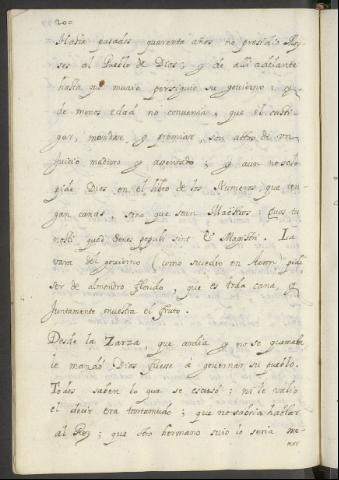 200
Había pasados quarenta años no presidió Moy-
ses al Pueblo de Dios; y de allí adelante
hasta que murio persiguio su govierno: q̃
de menos edad no convenia, que el casti-
gar, mandar, y premiar, son actos de un
juicio maduro y assentado; y aun no solo
pide Dios en el libro de los Numeros, que ten-
gan canas, sino que sean Maëstros: Quos tu
nosti quod senes populi sint & Magistri. La
vara del govierno (como sucedio en Aaron) pide
ser de almendro florido, que es toda cana, y
juntamente muestra el fruto.
Desde la Zarza, que ardia y no se quemaba
le mandò Dios fuese a governar su pueblo.
Todos saben lo que se escusó; ni le valio
el decir era tartamudo; que no sabria hablar
al Rey; que otro hermano suio lo seria me-
nor